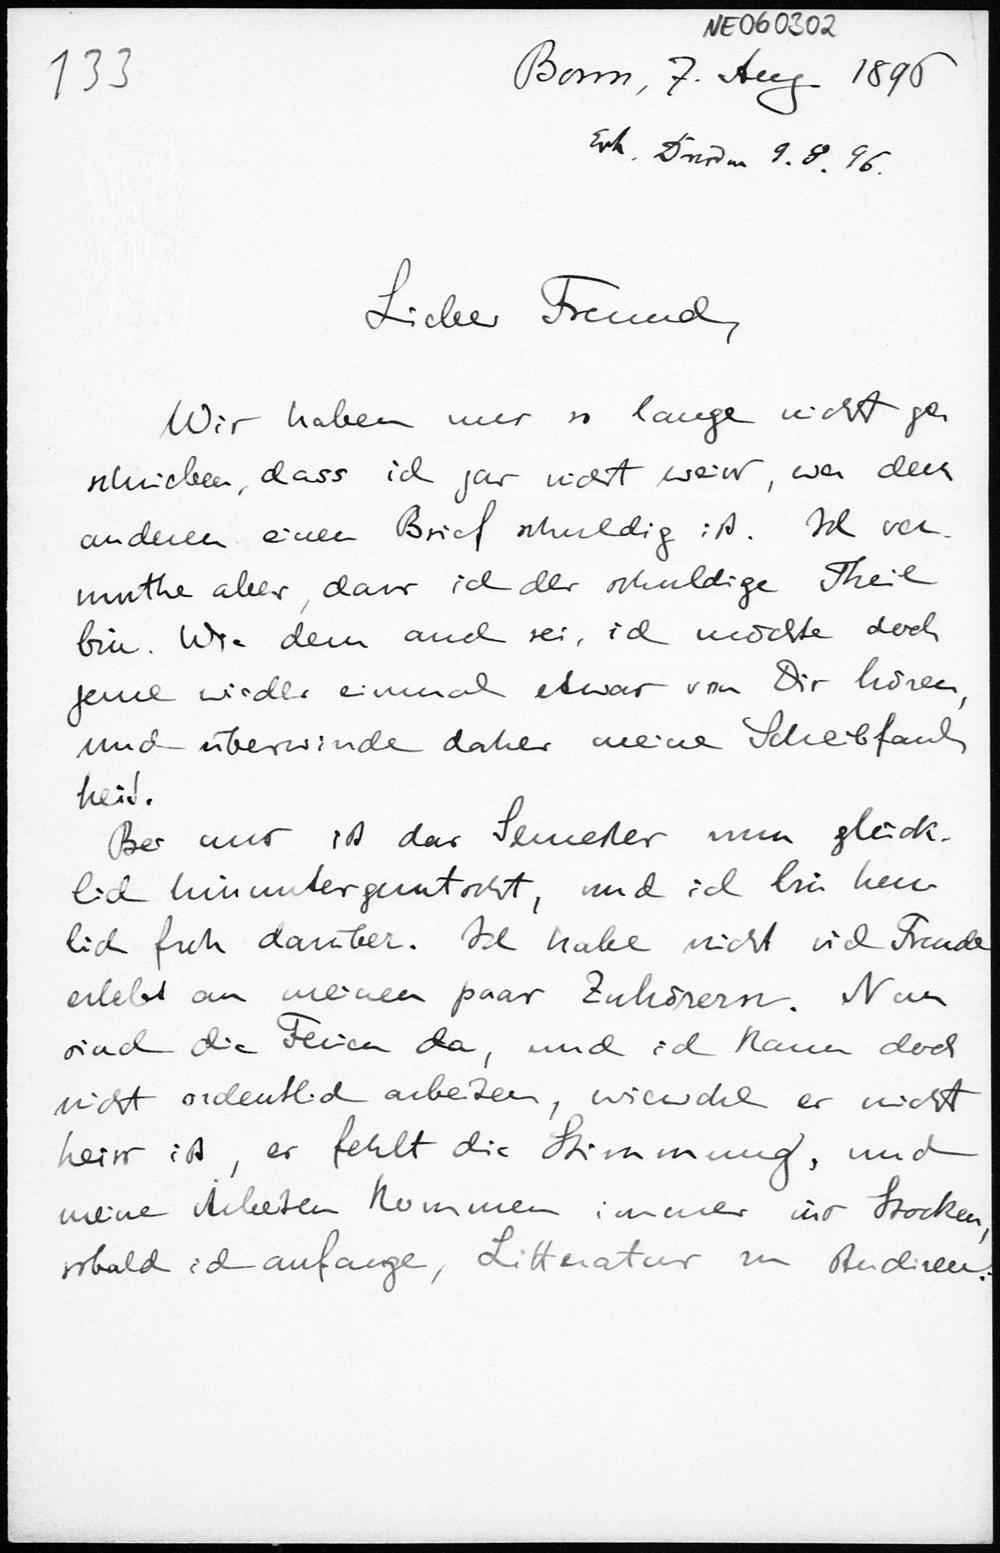 NE060302
133
Bonn, 7. Aug. 1896
Erh. Dresden 9. 8. 96.
Lieber Freund,
Wir haben uns so lange nicht ge
schrieben, dass ich gar nicht weiss, wer dem
anderen einen Brief schuldig ist. Ich ver-
muthe aber, dass ich der schuldige Theil
bin. Wie dem auch sei, ich möchte doch
gerne wieder einmal etwas von Dir hören,
und überwinde daher meine Scheibfaul
heit.
Bei uns ist das Semester nun glück-
lich hinuntergerutscht, und ich bin herz
lich froh darüber. Ich habe nicht viel Freude
erlebt an meinen paar Zuhörern. Nun
sind die Ferien da, und ich kann doch
nicht ordentlich arbeiten, wiewohl es nicht
heiss ist, es fehlt die Stimmung, und
meine Arbeiten kommen immer ins Stocken,
sobald ich anfange, Litteratur zu studiren.